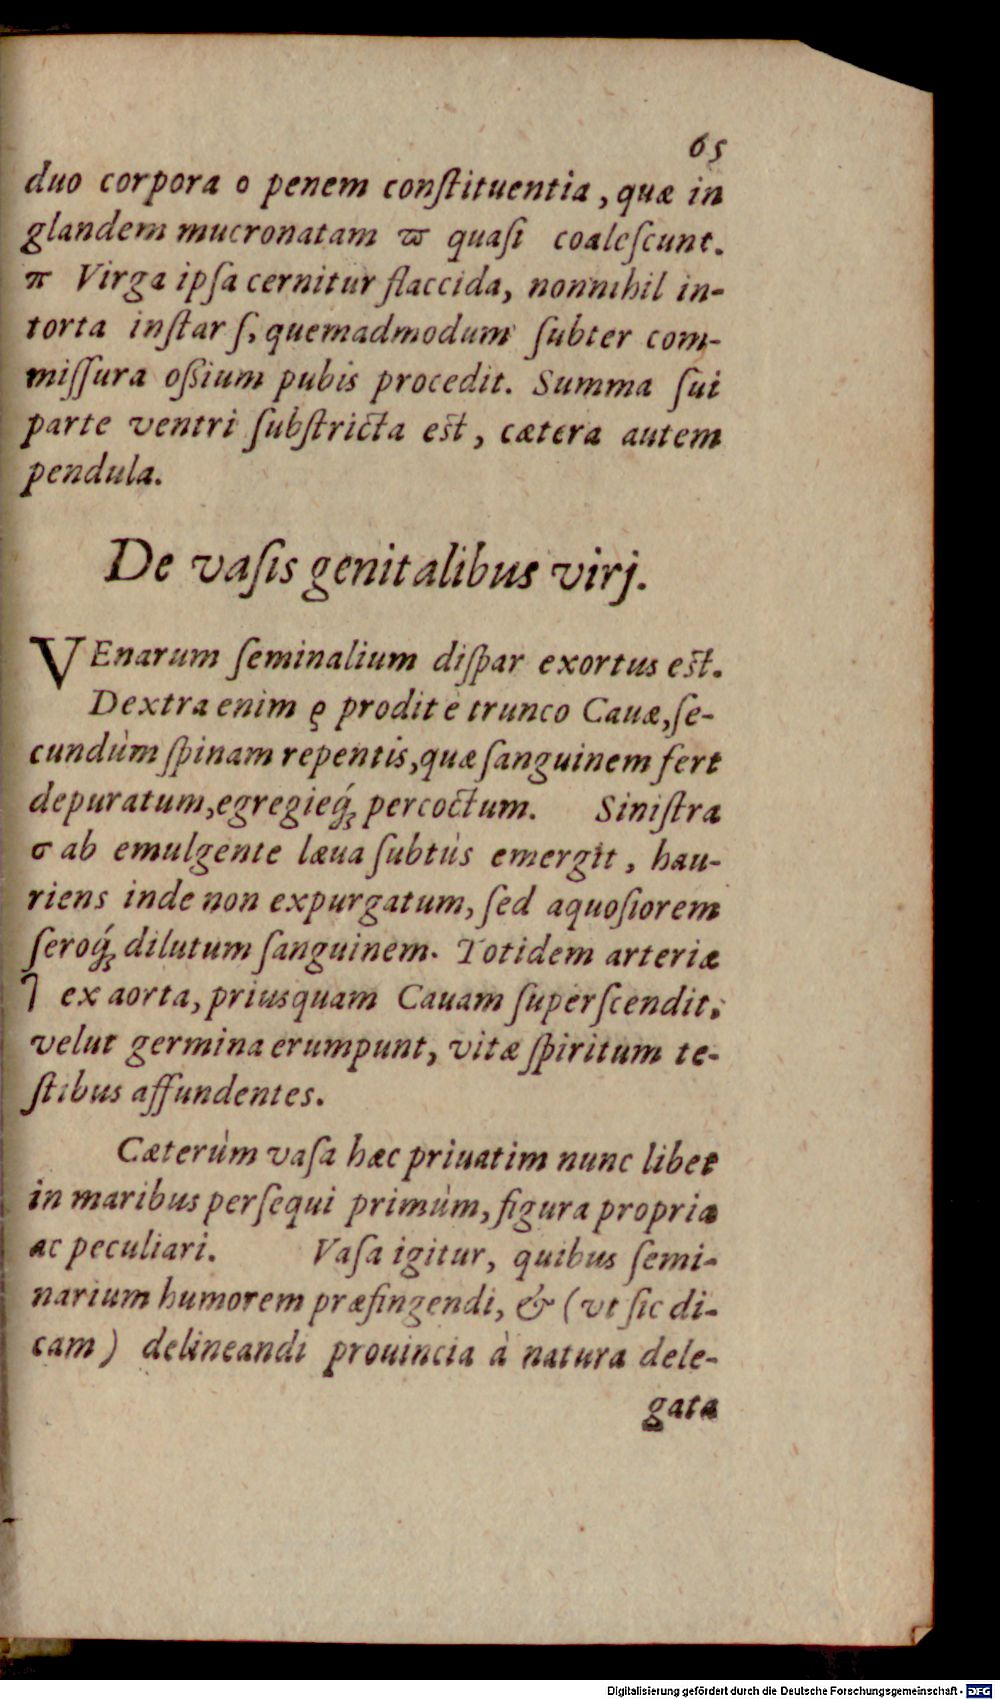 65
duo corpora o penem conſtituentia, quæ in
glandem mucronatam ϖ quaſi coaleſcunt.
π Virga ipſa cernitur flaccida, nonnihil in-
torta inſtar ſ, quemadmodum ſubter com-
miſſura oßium pubis procedit. Summa ſui
parte ventri ſubſtricta eſt, cætera autem
pendula.
De vaſis genitalibus virj.
VEnarum ſeminalium diſpar exortus eſt.
Dextra enim ϱ prodit è trunco Cauæ, ſe-
cundùm ſpinam repentis, quæ ſanguinem fert
depuratum, egregieq́; percoctum. Siniſtra
σ ab emulgente læua ſubtùs emergit, hau-
riens inde non expurgatum, ſed aquoſiorem
ſeroq́; dilutum ſanguinem. Totidem arteriæ
ex aorta, priusquam Cauam ſuperſcendit,
velut germina erumpunt, vitæ ſpiritum te-
ſtibus affundentes.
Cæterùm vaſa hæc priuatim nunc libet
in maribus perſequi primùm, figura propria
ac peculiari. Vaſa igitur, quibus ſemi-
narium humorem præfingendi, & (vt ſic di-
cam) delineandi prouincia à natura dele-
gata
Digitalisierung gefördert durch die Deutsche Forschungsgemeinschaft - DFG